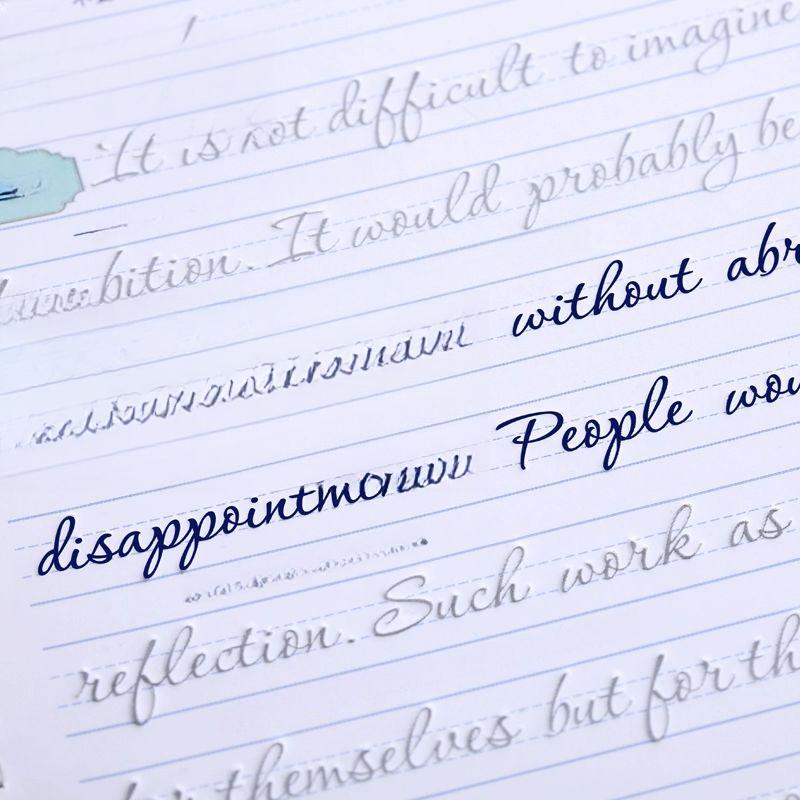 It is not difficult to imagine
bition. It would probably be
without abr
disappointm People wou
reflection. Such work as
themselves but for th